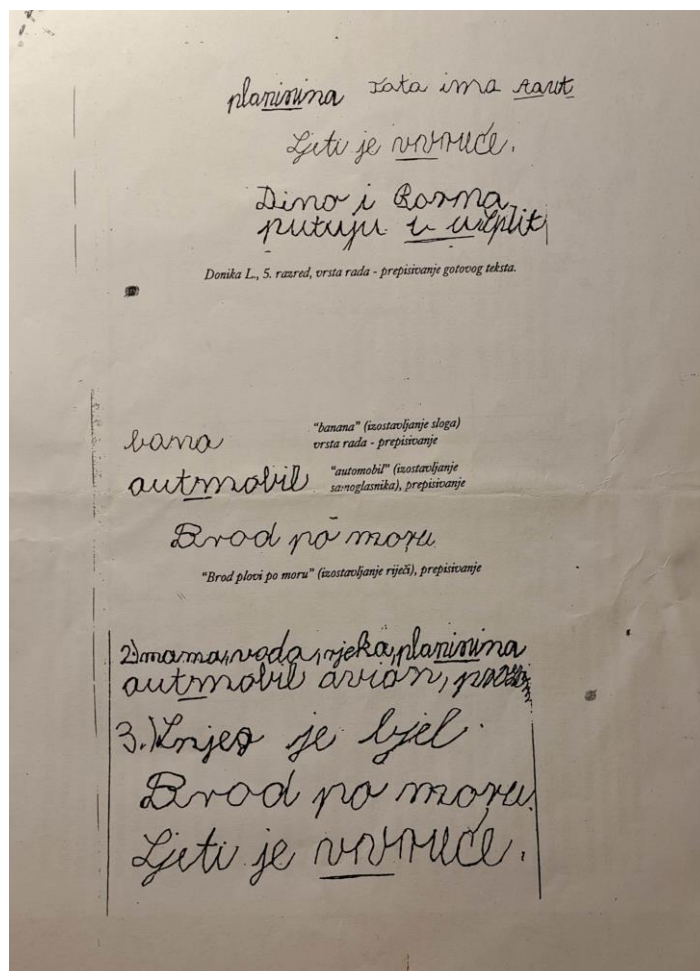 planinina Tata ima taut
Ljeti je vvvruće.
Dino i Borna
putuju u u Split
Donika L., 5. razred, vrsta rada - prepisivanje gotovog teksta.
bana
"banana" (izostavljanje sloga)
vrsta rada - prepisivanje
autmobil
"automobil" (izostavljanje
samoglasnika), prepisivanje
Brod po moru
"Brod plovi po moru" (izostavljanje riječi), prepisivanje
2.) mama, voda, rjeka, planinina
autmobil avion,
3.) Snjeg je bjel.
Brod po moru.
Ljeti je vvvruće.